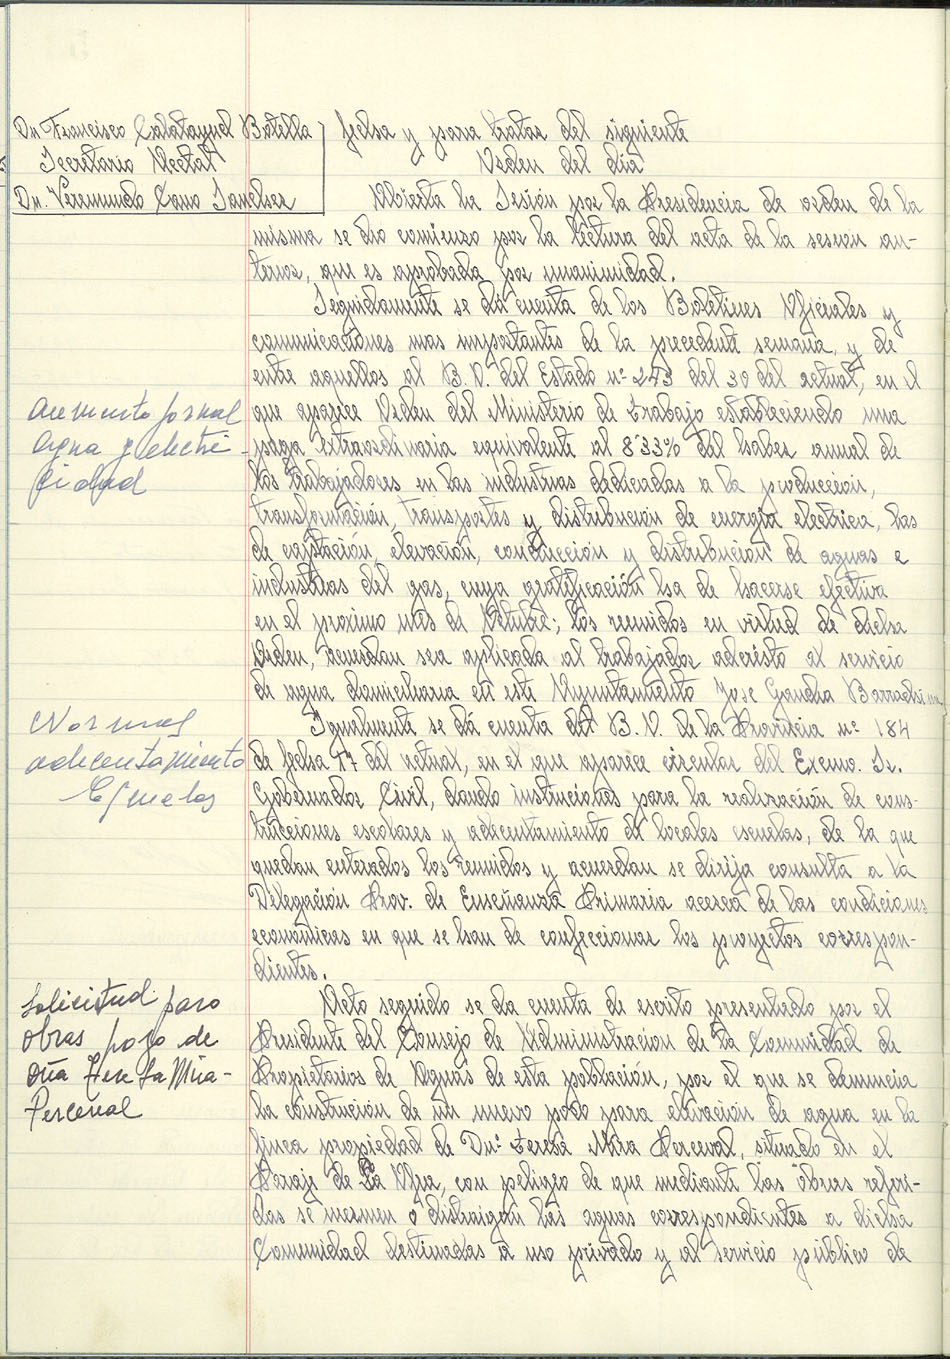 Dn Francisco Calatayud Botella
Secretario Acctal
Dn. Veremundo Cano Sanchez
fecha y para tratar del siguiente
Orden del dia
Abierta la Sesión por la Presidencia de orden de la
misma se dió comienzo por la lectura del acta de la sesion an-
terior, que es aprobada por unanimidad.
Seguidamente se dá cuenta de los Boletines Oficiales y
comunicaciones mas importantes de la precedente semana, y de
entre aquellos al B.O. del Estado nº 273 del 30 del actual, en el
Aumento jornal
Agua y electri-
cidad
que aparece Orden del Ministerio de Trabajo estableciendo una
paga extraordinaria equivalente al 8'33% del haber anual de
los trabajadores en las industrias dedicadas a la producción,
transformación, transportes y distribución de energia electrica, las
de captación, elevación, conducción y distribución de aguas e
industrias del gas, cuya gratificación ha de hacerse efectiva
en el proximo mes de Octubre; los reunidos en virtud de dicha
Orden, acuerdan sea aplicada al trabajador adcrito al servicio
de agua domiciliaria en este Ayuntamiento Jose Gandia Barrachina
Normas
adecentamiento
Escuelas
Igualmente se dá cuenta del B.O. de la Provincia nº 184
de fecha 17 del actual, en el que aparece circular del Excmo. Sr.
Gobernador Civil, dando instrucciones para la realización de cons-
trucciones escolares y adecentamiento de locales escuelas, de la que
quedan enterados los reunidos y acuerdan se dirija consulta a la
Delegación Prov. de Enseñanza Primaria acerca de las condiciones
económicas en que se han de confeccionar los proyectos correspon-
dientes.
Solicitud para
obras pozo de
Dña Teresa Mira-
Perceval
Acto seguido se da cuenta de escrito presentado por el
Presidente del Consejo de Administración de la Comunidad de
Propietarios de Aguas de esta población, por el que se denuncia
la construcion de un nuevo pozo para elevación de agua en la
finca propiedad de Dnª Teresa Mira Perceval, situado en el
Paraje de La con peligro de que mediante las obras referi-
das se mermen o distraigan las aguas correspondientes a dicha
Comunidad destinadas a uso privado y al servicio público de